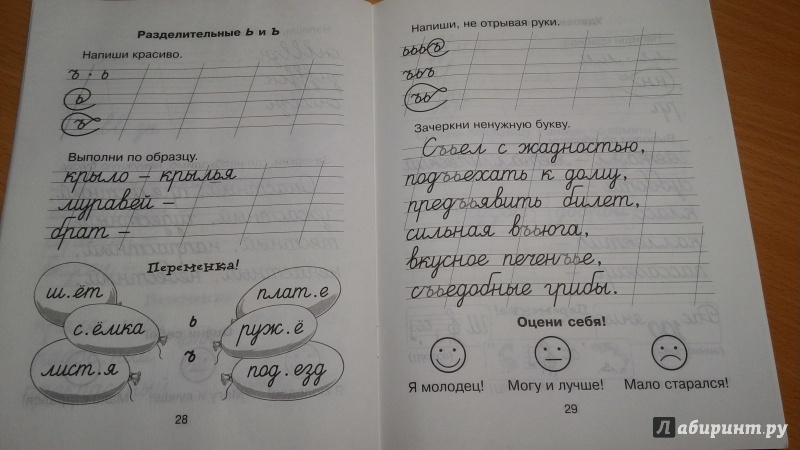 Разделительные ь и ъ
Напиши красиво.
ъ · ь
ь
ъ
Выполни по образцу.
крыло – крылья
муравей –
брат –
Переменка!
ш.ёт
плат.е
с.ёмка
ь
руж.ё
ъ
лист.я
под.езд
28
Напиши, не отрывая руки.
ььь ъ
ъъъ
ъь
Зачеркни ненужную букву.
Съьел с жадностью,
подъьехать к дому,
предъьявить билет,
сильная въьюга,
вкусное печенъье,
съьедобные грибы.
Оцени себя!
Я молодец!
Могу и лучше!
Мало старался!
29
Лабиринт.ру